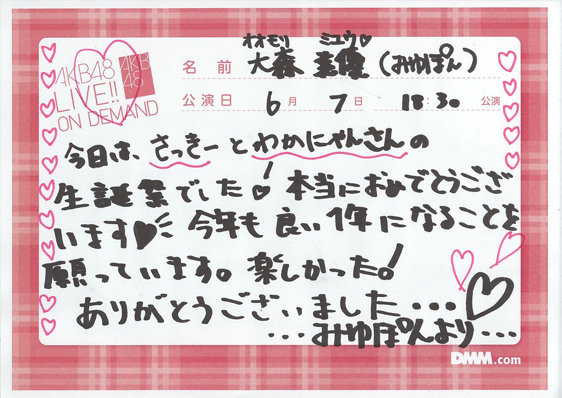 AKB48
LIVE!!
ON DEMAND
AKB
48
オオモリ ミユウ♡
名前 大森 美優 (みゆぽん)
公演日 6月 7日 18:30 公演
今日は、さっきーとわかにゃんさんの
生誕祭でした! 本当におめでとうござ
います♥ 今年も良い1年になることを
願っています。楽しかった!
ありがとうございました…♡
…みゆぽんより…
DMM.com